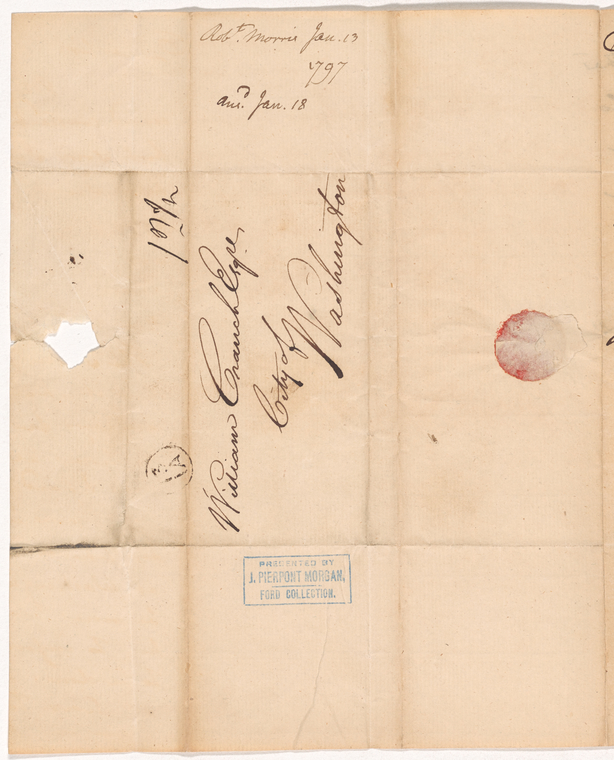 Robt. Morris Jan. 13
1797
ansd. Jan. 18
William Cranch Esqr.
City of
Washington
PRESENTED BY
J. PIERPONT MORGAN,
FORD COLLECTION.